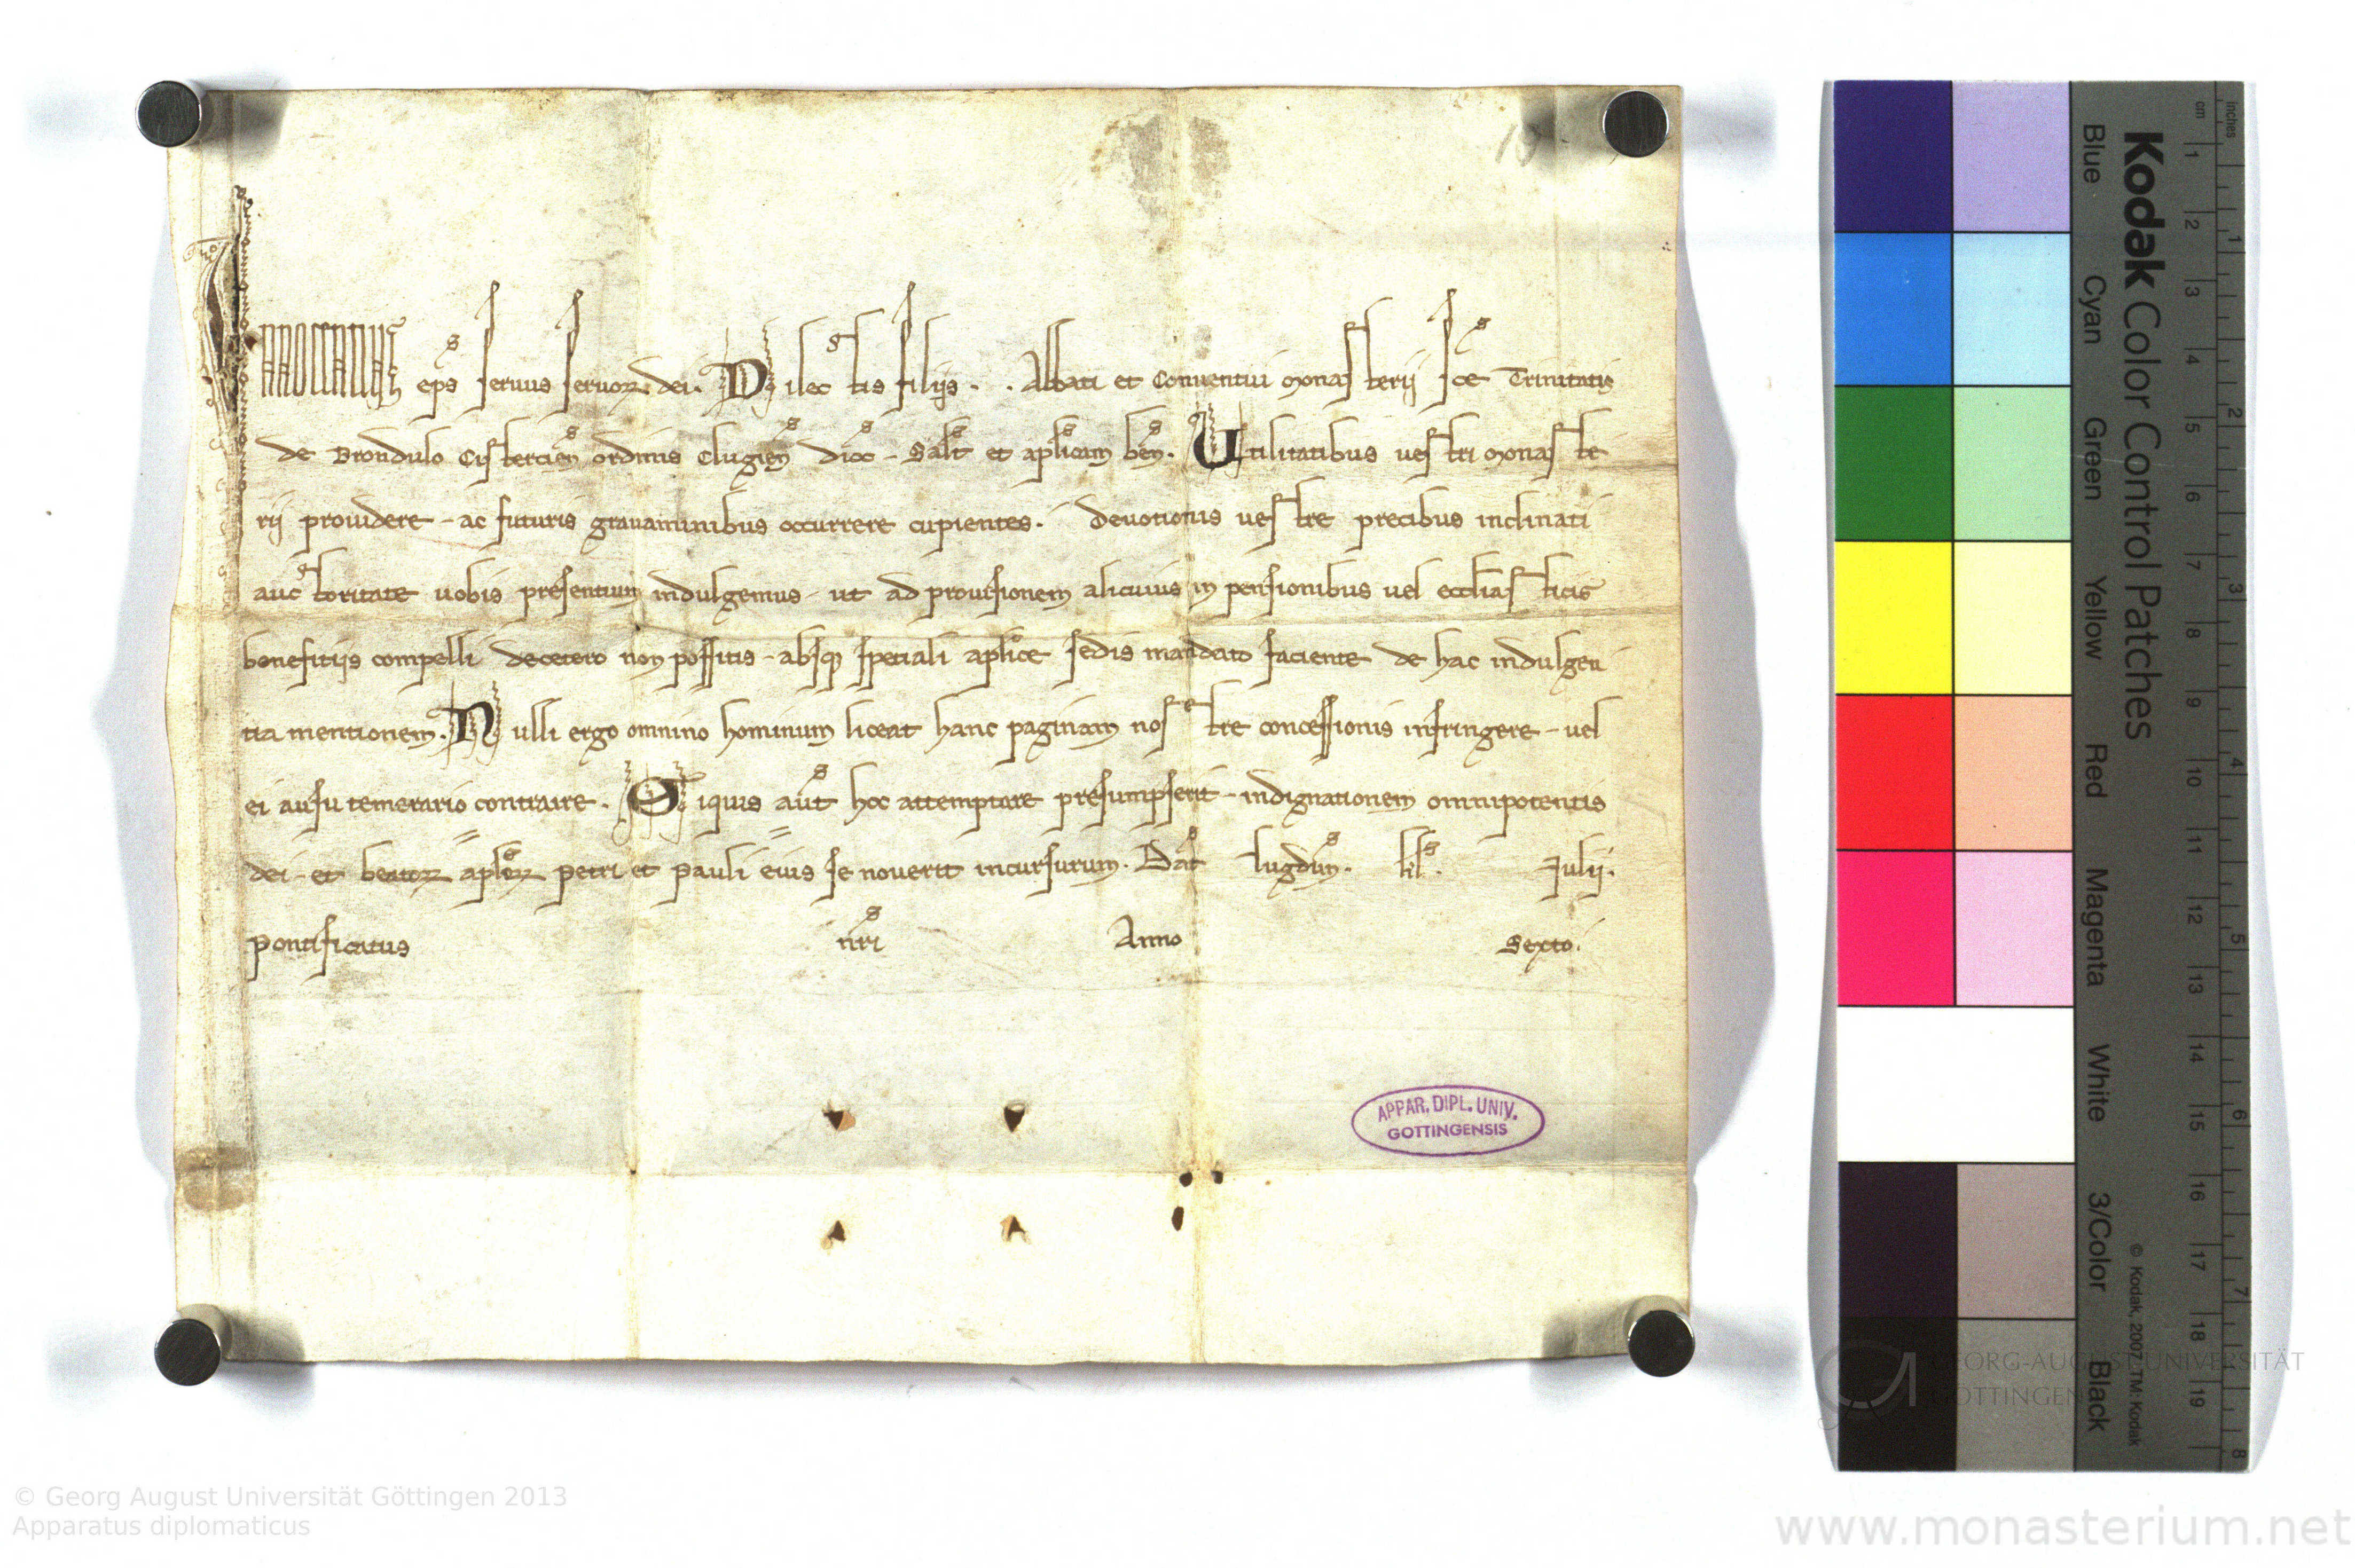 INNOCENTIUS ep̄s seruus seruoꝝ dei. Dilectis filiis . . Abbati et Conuentui monasterii sc̄e Trinitatis
de Brondulo Cistercien̄ ordinis Clugien̄ dioc̄ - Sal̄t et ap̄licam ben̄. Utilitatibus uestri monaste
rij prouidere - ac futuris grauaminibus occurrere cupientes. deuotionis uestre precibus inclinati
auctoritate uobis presentium indulgemus - ut ad prouisionem alicuius in pensionibus uel ecclīasticis
benefitijs compelli decetero non possitis - absqꝫ spetiali ap̄lice sedis mandato faciente de hac indulgen
tia mentionem. Nulli ergo omnino hominum liceat hanc paginam nostre concessionis infringere - uel
ei ausu temerario contraire. Siquis aūt hoc attemptare presumpserit - indignationem omnipotentis
dei - et beatoꝝ ap̄loꝝ petri et pauli eius se nouerit incursurum. Dat̄ lugdun̄. kl̄. Julij.
pontificatus nr̄i Anno Sexto.
APPAR. DIPL. UNIV.
GOTTINGENSIS
Kodak Color Control Patches
Blue Cyan Green Yellow Red Magenta White 3/Color Black
© Kodak, 2007 TM: Kodak
inches 1 2 3 4 5 6 7 8
cm 1 2 3 4 5 6 7 8 9 10 11 12 13 14 15 16 17 18 19
GEORG-AUGUST-UNIVERSITÄT
GÖTTINGEN
© Georg August Universität Göttingen 2013
Apparatus diplomaticus
www.monasterium.net